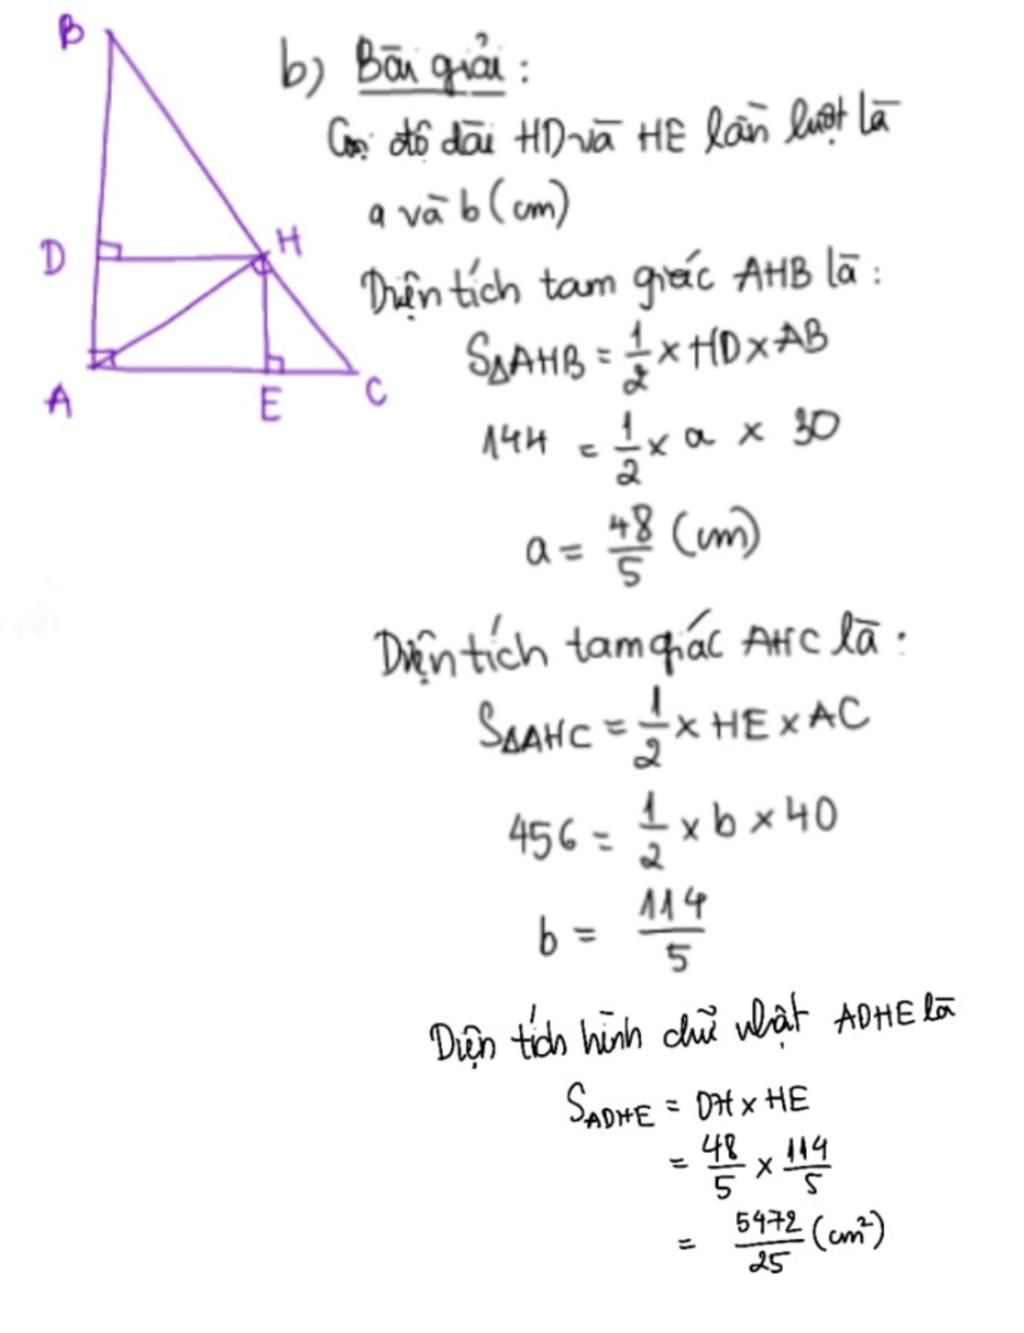 B
b) Bài giải:
Gọi độ dài HD và HE lần lượt là
a và b (cm)
D
H
Diện tích tam giác AHB là:
S∆AHB = 1/2 x HD x AB
A
E
C
144 = 1/2 x a x 30
a = 48/5 (cm)
Diện tích tam giác AHC là:
S∆AHC = 1/2 x HE x AC
456 = 1/2 x b x 40
b = 114/5
Diện tích hình chữ nhật ADHE là
S ADHE = DH x HE
= 48/5 x 114/5
= 5472/25 (cm²)